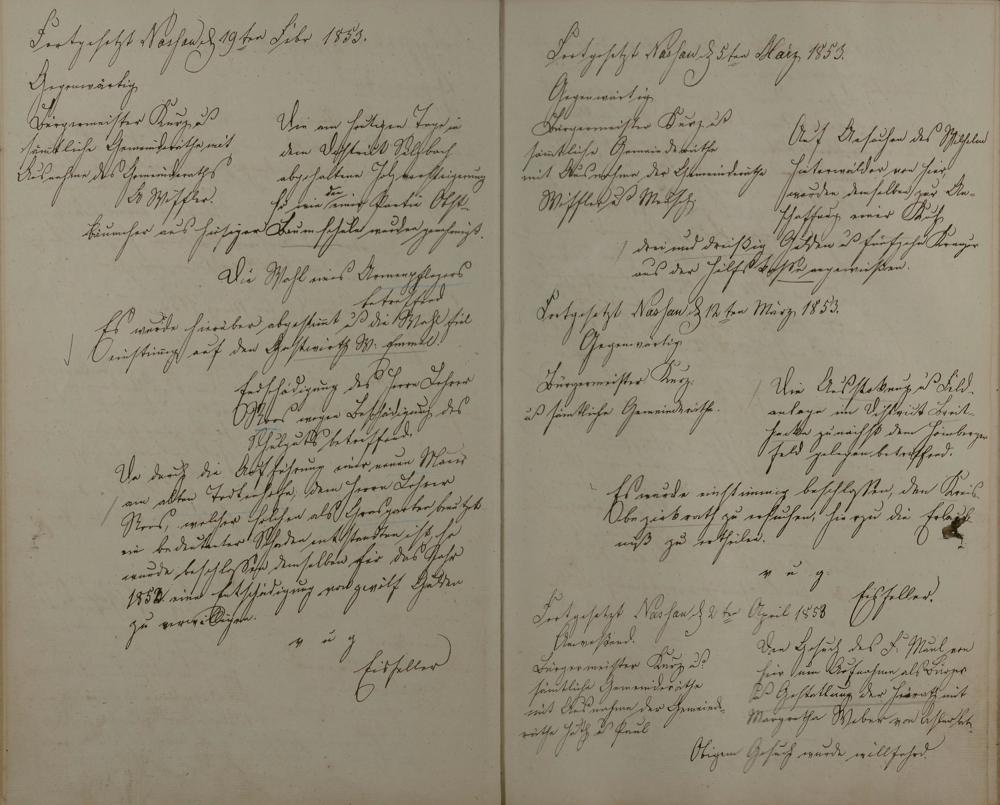 Fortgesetzt Nassau d 19ten Febr 1853.
Gegenwärtig
Bürgermeister Kurz u
sämtliche Gemeinderäthe mit
Ausnahme des Gemeinderaths
Wissler.
Die am heutigen Tage in
dem District Sulzbach
abgehaltene Holzversteigerung
so wie die einer Partie Obst-
bäumcher aus hiesiger Baumschule wurden genehmigt.
Die Wahl eines Armenpflegers
betreffend
Es wurde hierüber abgestimmt u die Wahl fiel
einstimmig auf den Gastwirth W:
Entschädigung des Herrn Lehrer
wegen Beschädigung des
Schulguts betreffend.
Da durch die Aufführung einer neuen Mauer
am alten Todtenhofe, dem Herrn Lehrer
welcher solchen als Grasgarten benutzt
ein bedeutender Schaden entstanden ist, so
wurde beschlossen demselben für das Jahr
1852 eine Entschädigung von zwölf Gulden
zu verwilligen.
v u g
Eisseller
Fortgesetzt Nassau d 5ten März 1853.
Gegenwärtig
Bürgermeister Kurz u
sämtliche Gemeinderäthe
mit Ausnahme der Gemeinderäthe
Wissler u
Auf Ansuchen des Wilhelm
Hinterwälder von hier
wurden demselben zur An-
schaffung einer Kuh
drei und dreißig Gulden u fünfzehn Kreuzer
aus der Hilfskasse angewiesen.
Fortgesetzt Nassau d 12ten März 1853.
Gegenwärtig
Bürgermeister Kurz
u sämtliche Gemeinderäthe.
Die Ausstockung u Feld-
anlage im District Breit-
hecke zunächst dem Hömberger
Feld gelegen betreffend.
Es wurde einstimmig beschlossen, den Kreis-
bezirksrath zu ersuchen, hierzu die Erlaub-
niß zu ertheilen.
v u g.
Eisseller.
Fortgesetzt Nassau d 2ten April 1853
Anwesend.
Bürgermeister Kurz u
sämtliche Gemeinderäthe
mit Ausnahme der Gemeinde-
räthe u Paul
Den Gesuch des F. Maul von
hier um Aufnahme als Bürger
u Gestattung der Heirath mit
Margretha Weber von
Obigem Gesuch wurde willfahrd.